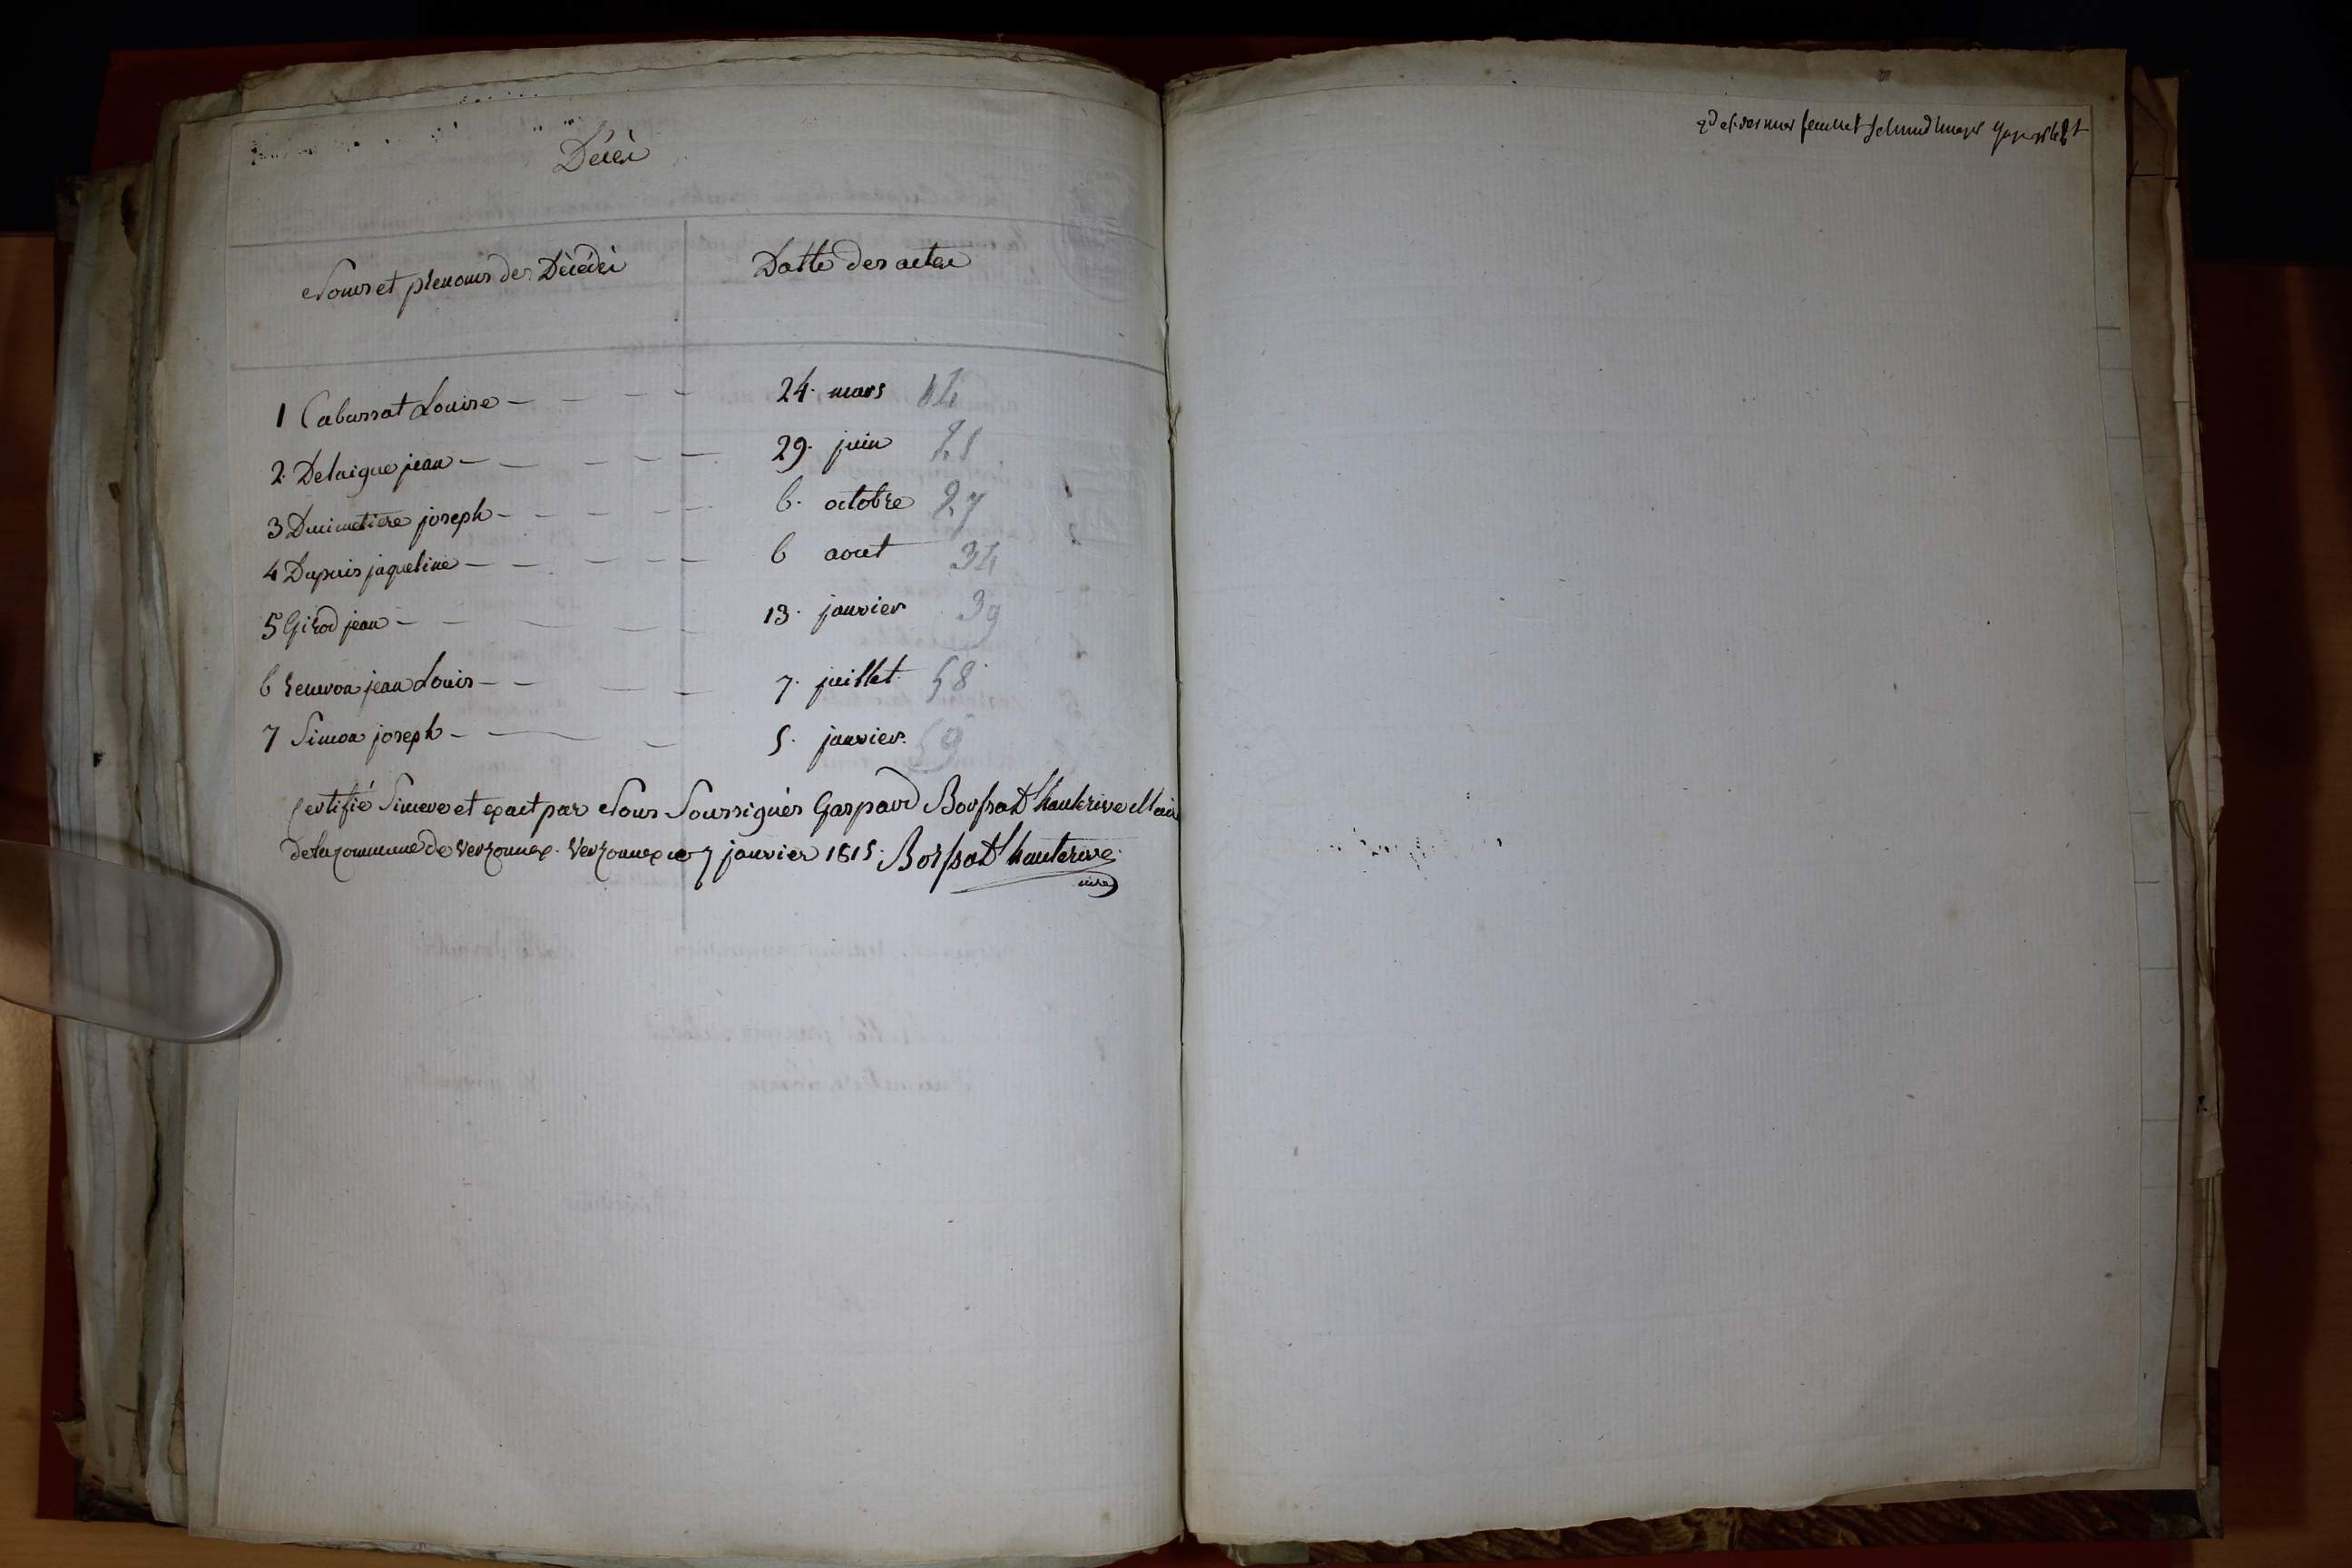 Décès
Noms et prenoms des Décédés
Datte des actes
1 Cabussat Louise - - - - 24. mars 14
2. Delaigue jean - - - - - 29. juin 25
3 Dumetiere joseph - - - - - 6. octobre 27
4 Dupuis jaqueline - - - - - 6 aout 34
5 Girod jean - - - - 13. janvier 39
6 jean Louis - - - - 7. juillet 58
7 Simon joseph - - - 5. janvier. 59
Certifié Sincere et exact par Nous Soussignés Gaspard Borssat D'hauterive Maire
de la commune de Versonnex. Versonnex ce 7 janvier 1815. Borssat D'hauterive
2d et dernier feuillet